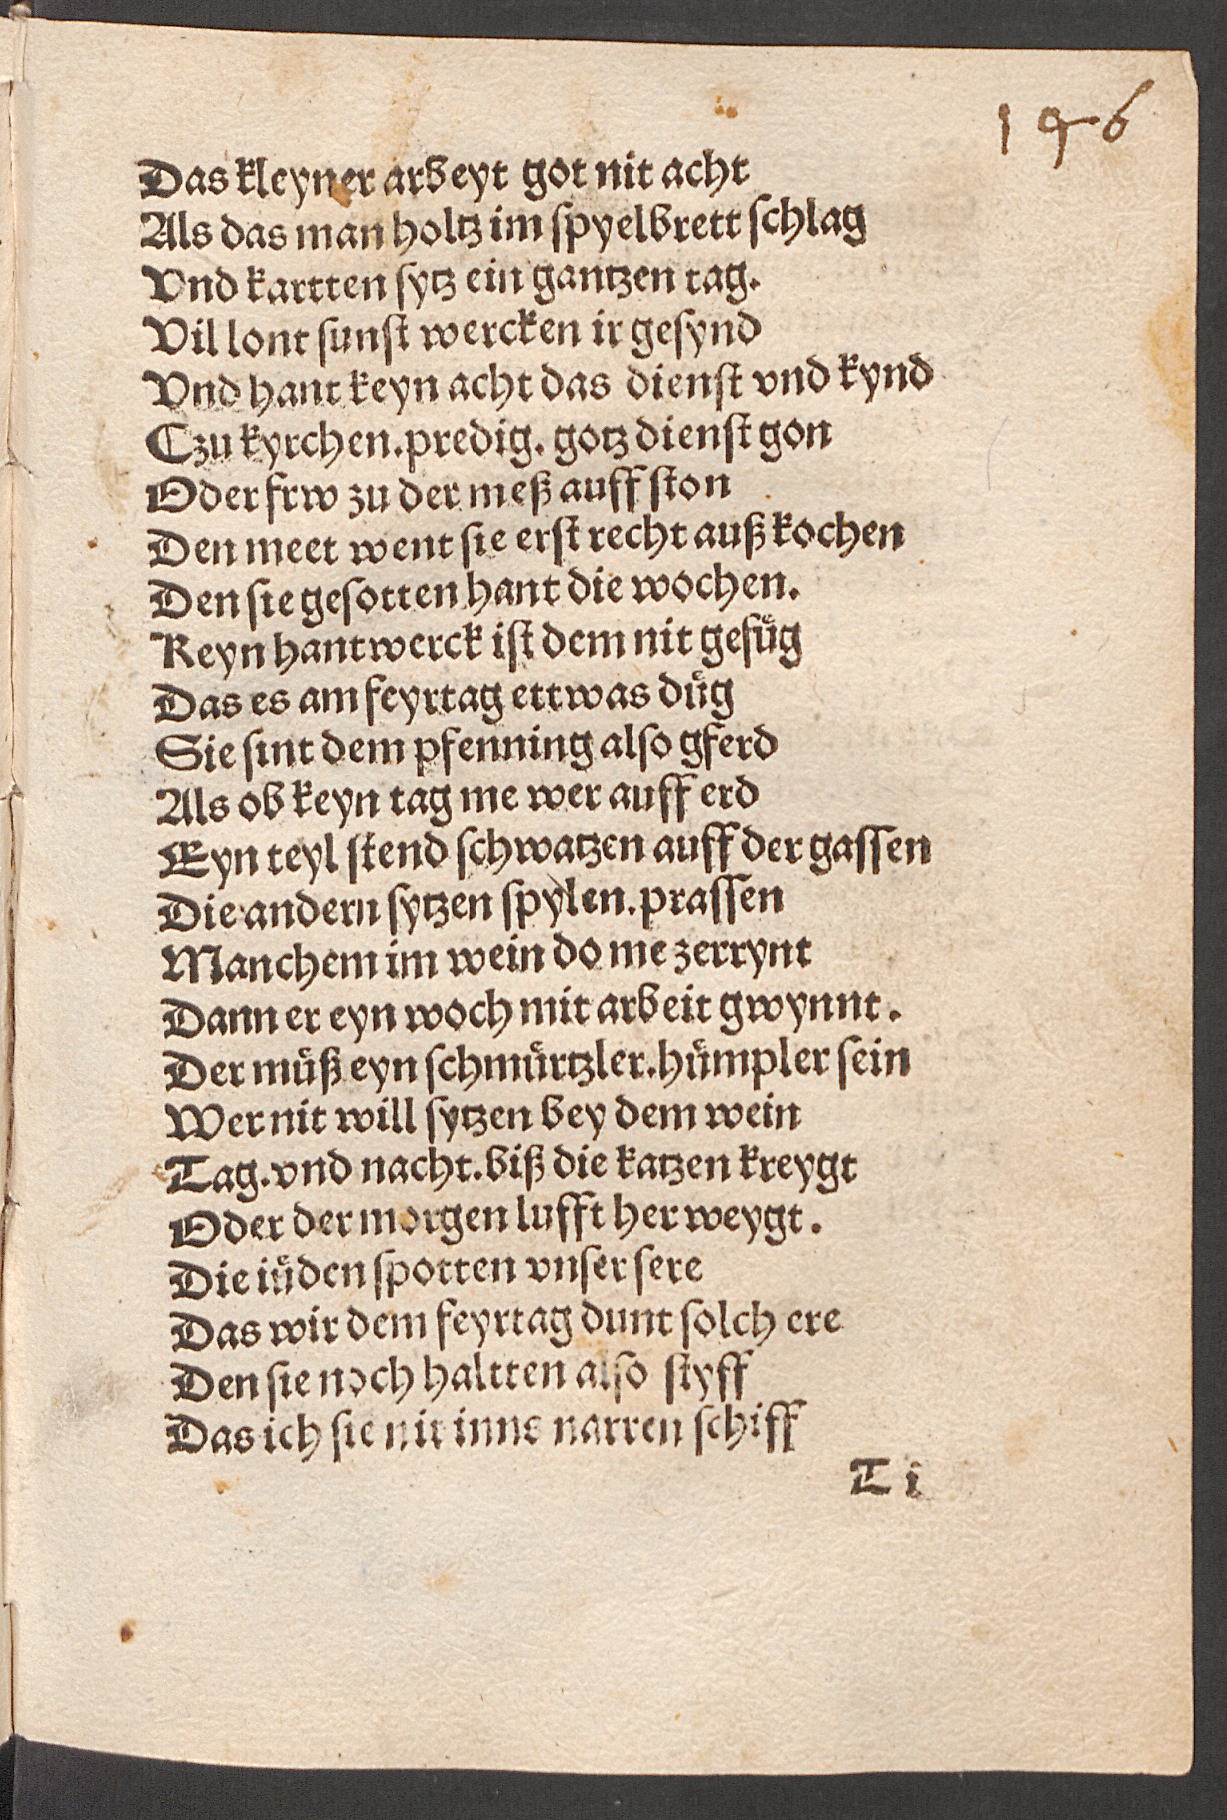 146
Das kleyner arbeyt got nit acht
Als das man holtz im spyelbrett schlag
Vnd kartten sytz ein gantzen tag.
Vil lont sunst wercken ir gesynd
Vnd hant keyn acht das dienst vnd kynd
Czu kyrchen. predig. gotz dienst gon
Oder frw zu der meß auff ston
Den meet went sie erst recht auß kochen
Den sie gesotten hant die wochen.
Keyn hantwerck ist dem nit gefüg
Das es am feyrtag ettwas düg
Sie sint dem pfenning also gferd
Als ob keyn tag me wer auff erd
Eyn teyl stend schwatzen auff der gassen
Die andern sytzen spylen. prassen
Manchem im wein do me zerrynt
Dann er eyn woch mit arbeit gwynnt.
Der müß eyn schmürtzler. hümpler sein
Wer nit will sytzen bey dem wein
Tag. vnd nacht. biß die katzen kreygt
Oder der morgen lufft her weygt.
Die iüden spotten vnser sere
Das wir dem feyrtag dunt solch ere
Den sie noch haltten also styff
Das ich sie nit inns narren schiff
T i